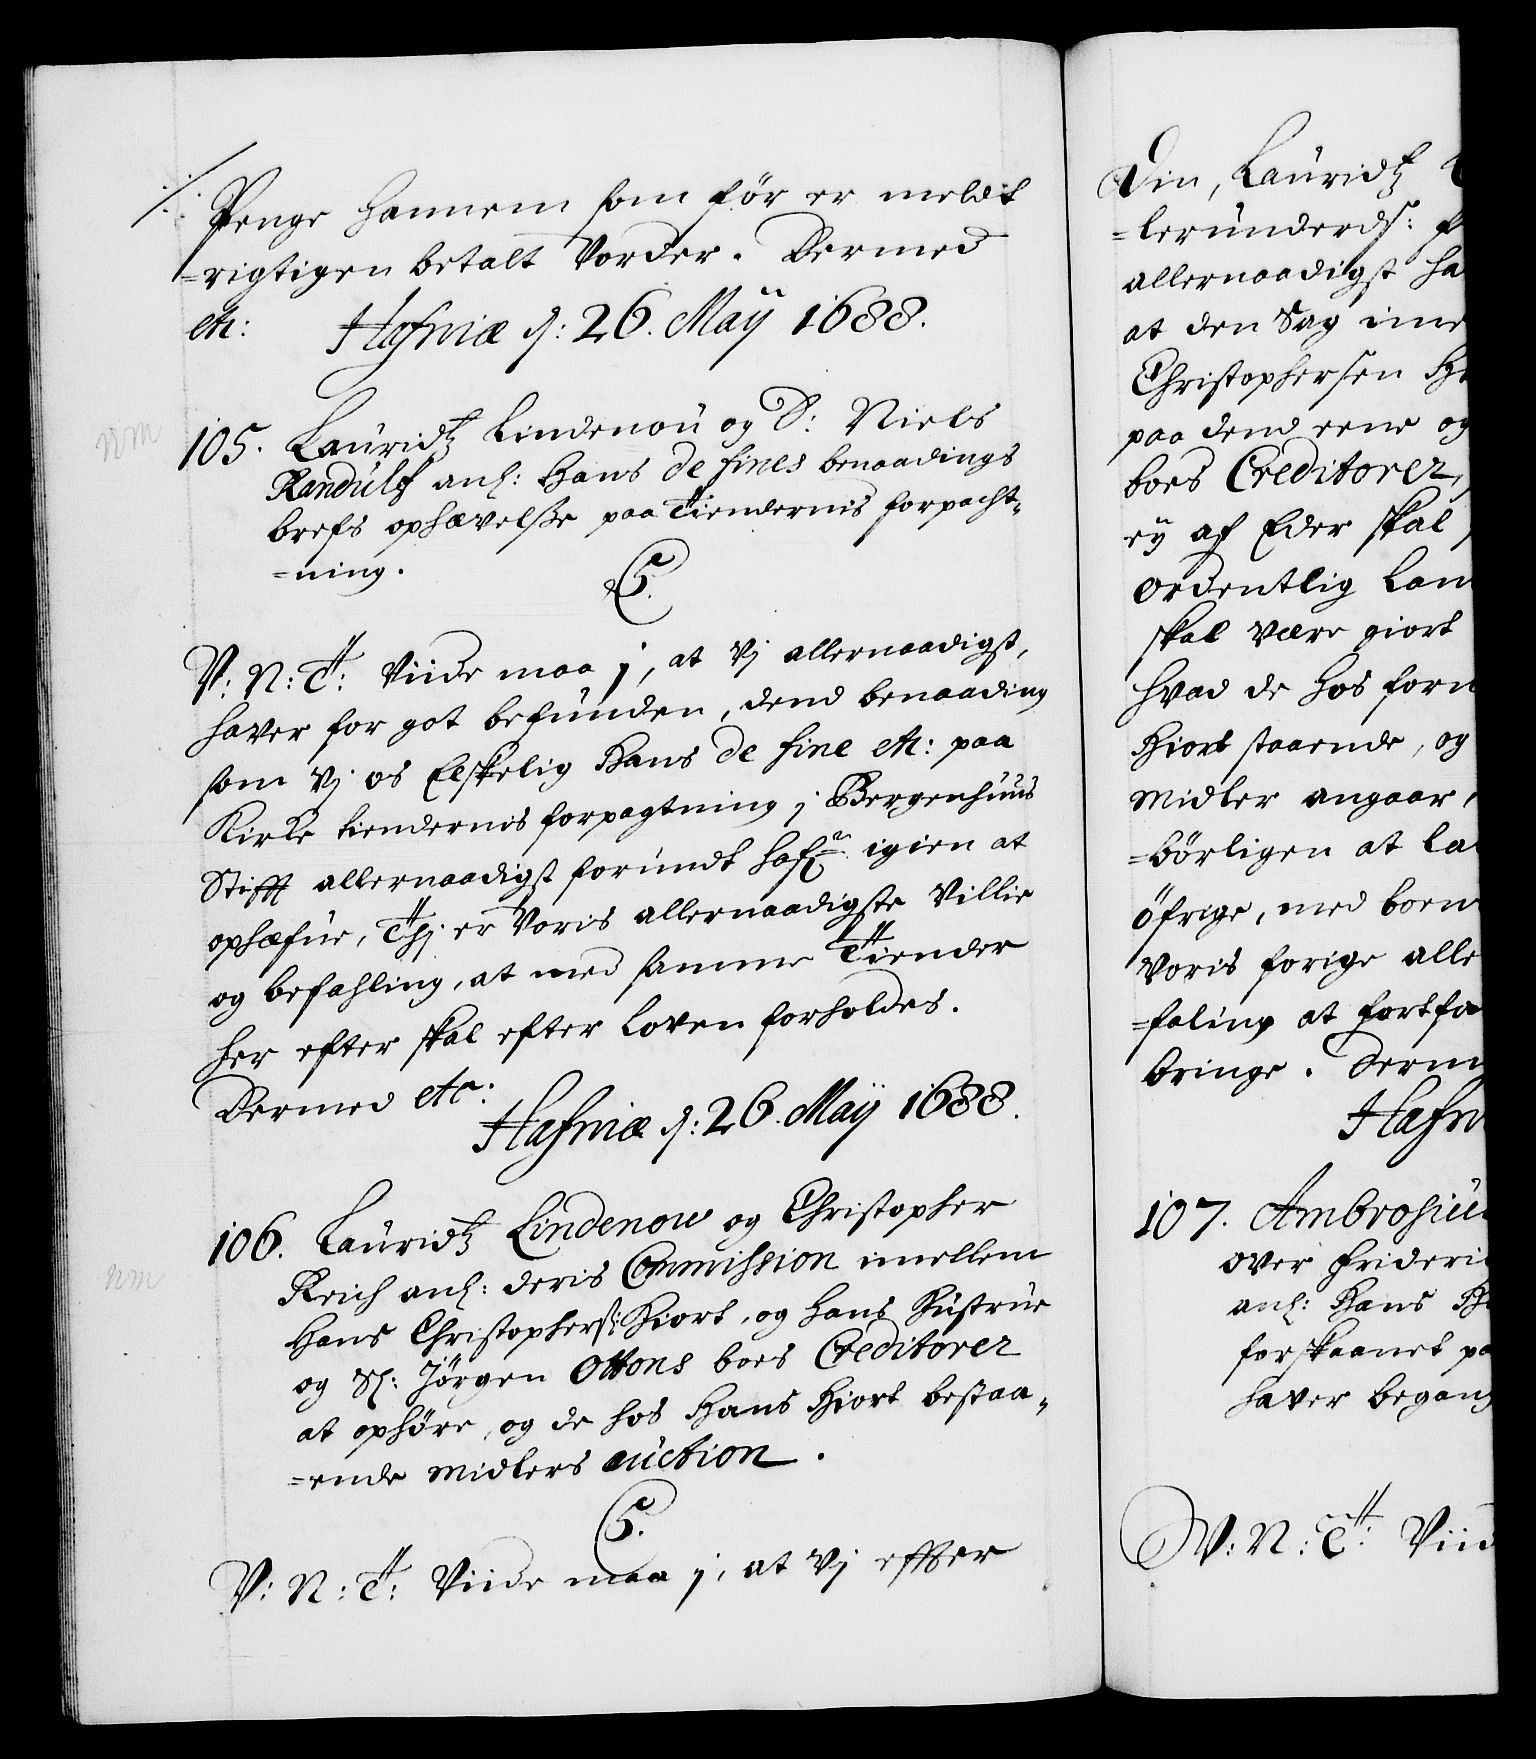 Penge hannem som för er meldt
=rigtigen betalt Vorder. Dermed
etc: Hafniæ d: 26. Maÿ 1688.
105. Lauridtz Lindenou og D: Niels
Randulf anl: Hans de fines benaadings
brefs ophævelse paa Tiendernis forpacht-
=ning.
C5.
V: N: T: Viide maa j, at Vj allernaadigst,
hafver for got befunden, dend benaading
som Vj os Elskelig Hans de fine etc: paa
Kirke tiendernis forpagtning j Bergenhuus
Stifft allernaadigst forundt hafr igien at
ophæfue, Thj er Voris allernaadigste Villie
og befahling, at med samme Tiender
her efter skal efter Loven forholdes.
Dermed etc: Hafniæ d: 26. Maÿ 1688.
106. Lauridtz Lindenow og Christopher
Reich anl: deris Commission imellem
Hans Christophers: Hiort, og hans Hustrue
og Sl: Jörgen Ottons boes Creditorer
at ophöre, og de hos Hans Hiort bestaa-
=ende midlers auction.
C5.
V: N: T: Viide maa j, at Vj effter
Din, Lauridtz
=lerunderds:
allernaadigst ha
at den Sag ime
Christophersen Hi
paa dend eene og
boes Creditorer,
eÿ af Eder skal
ordentlig Lan
skal være giort
hvad de hos forn
Hiort staaende, og
midler angaar,
=börligen at la
öfrige, med boen
Voris forige alle
=faling at fortfa
bringe. Derm
Hafn
107. Ambrosiu
over Frideri
anl: Hans H
forskaanet pa
haver begang
W: N: T: Viid